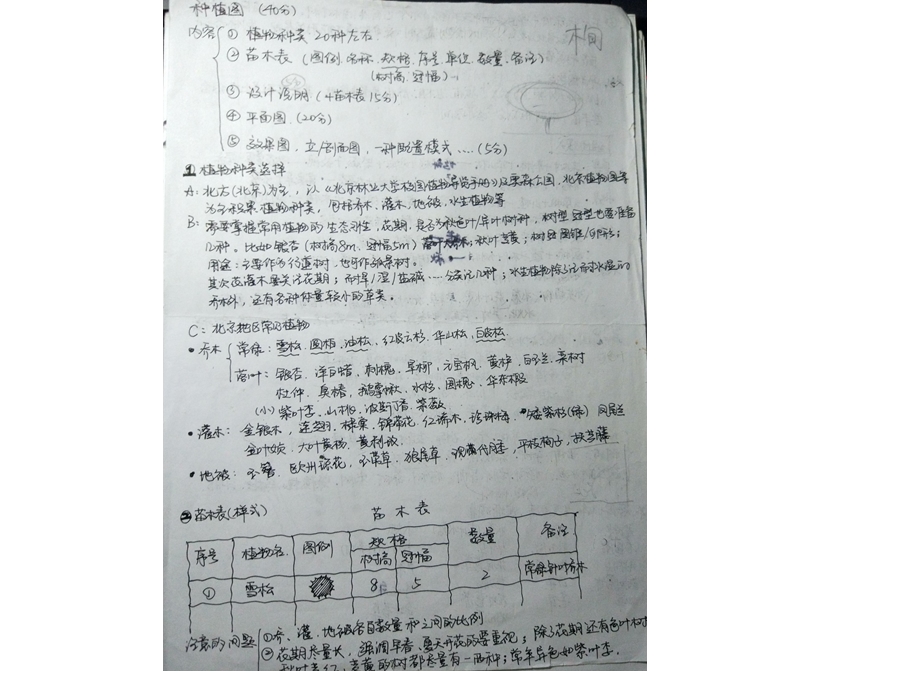 种植图 (40分)
内容 ① 植物种类 20种左右
② 苗木表 (图例.名称.规格.序号.单位.数量.备注)
(树高.冠幅)
③ 设计说明 (+苗木表15分)
④ 平面图 (20分)
⑤ 效果图,立/剖面图,一种配置模式....(5分)
1 植物种类选择
A: 北方(北京)为主,以《北京林业大学校园植物导览手册》及奥森公园,北京植物园等
为主积累植物种类,包括乔木、灌木、地被、水生植物等
B: 需要掌握常用植物的生态习性,花期,是否为秋色叶/异叶树种,树型冠型也要准备
几种。比如银杏(树高8m、冠幅5m)落叶大乔木;秋叶金黄;树冠圆锥/卵形;
用途:主要作为行道树,也可作孤景树。
其次花灌木要关注花期;而对旱/湿/盐碱……分类记几种;水生植物除了记耐水湿的
乔木外,还有各种体量较小的草类。
C: 北京地区常见植物
• 乔木 常绿: 雪松.圆柏.油松,红皮云杉.华山松,白皮松.
落叶: 银杏.洋白蜡.刺槐.旱柳.元宝枫.黄栌.白玉兰.栾树
杜仲.臭椿.鹅掌楸.水杉.国槐.华东椴
(小)紫叶李.山桃.波斯丁香.紫薇
• 灌木: 金银木,连翘.棣棠.锦带花.红瑞木.珍珠梅.矮紫杉(绿)
金叶女贞.大叶黄杨.黄刺玫.
• 地被: 玉簪.欧洲琼花.玉带草.狼尾草.八宝景天.平枝栒子.扶芳藤
2 苗木表(样式)
苗木表
序号 植物名 图例 规格 数量 备注
树高 冠幅
① 雪松 8 5 2 常绿针叶乔木
注意的问题 ①乔、灌、地被各自数量和之间的比例
②花期尽量长,强调早春、夏天开花的要重视;除了花期还有色叶树
秋叶变红,变黄的树都尽量有一两种;常年异色如紫叶李.